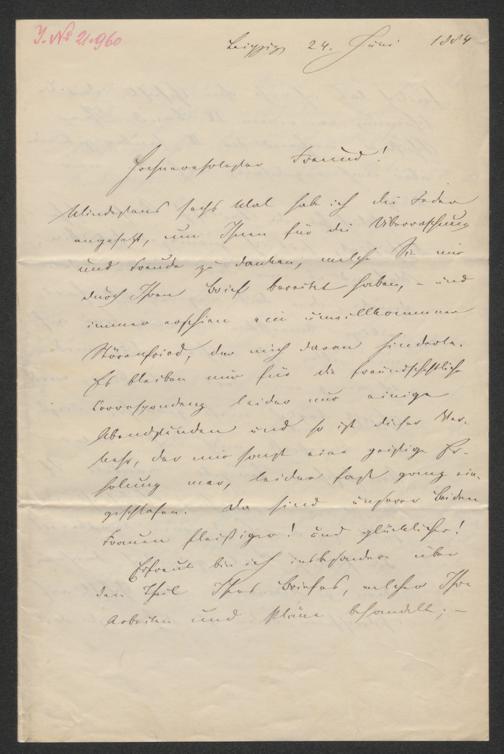 J. No 21.960
Leipzig, 24. Juni 1884
Hochverehrtester Freund!
Mindestens sechs Mal hab ich die Feder
angesetzt, um Ihnen für die Überraschung
und Freude zu danken, welche Sie mir
durch Ihren Brief bereitet haben, – und
immer erschien ein unwillkommener
Störenfried, der mich daran hinderte.
Es bleiben mir für die freundschftliche
Correspondenz leider nur einige
Abendstunden und so ist dieser Ver-
kehr, der mir sonst eine geistige Er-
holung war, leider fast ganz ein-
geschlafen. Da sind unsere beiden
Frauen fleißiger! und glücklicher!
Erfreut bin ich insbesondere über
den Theil Ihres Briefes, welcher Ihre
Arbeiten und Pläne behandelt; –